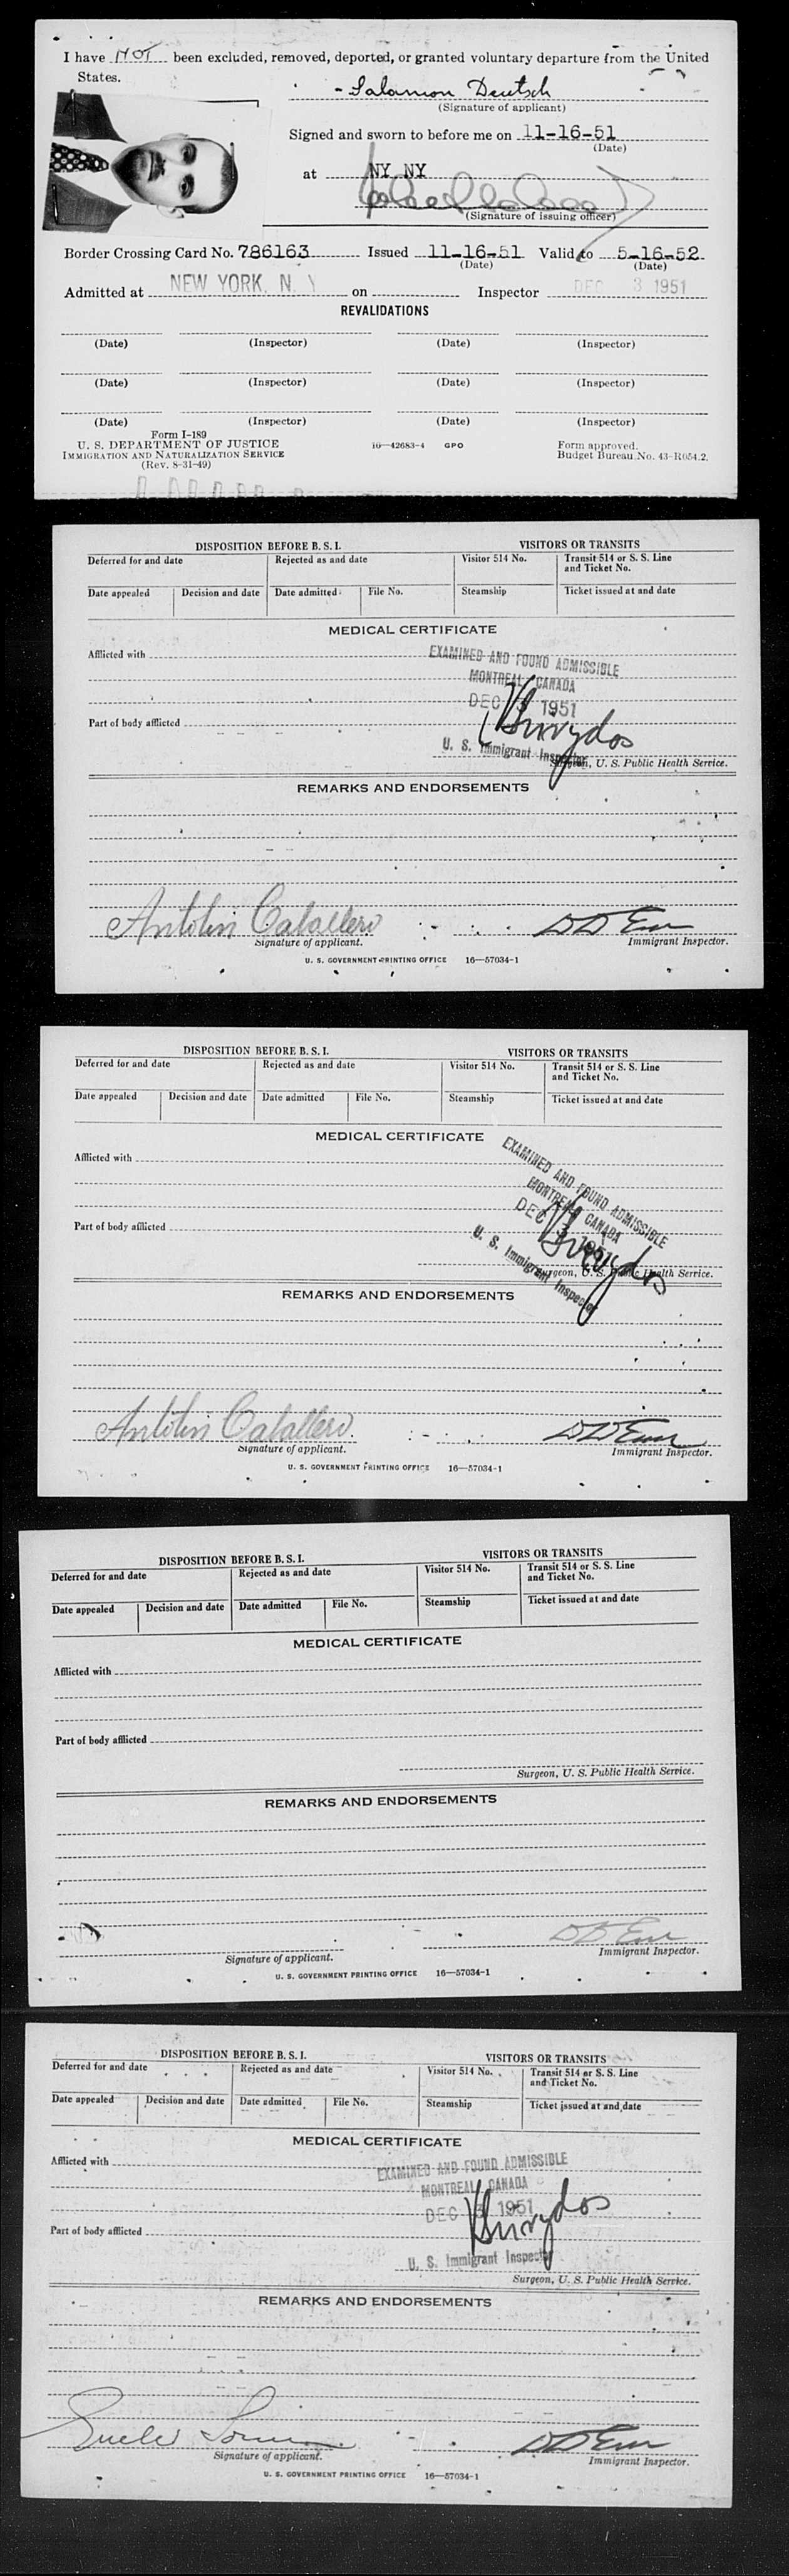 I have NOT been excluded, removed, deported, or granted voluntary departure from the United
States.
Salamon Deutsch
(Signature of applicant)
Signed and sworn to before me on 11-16-51
(Date)
at NY NY
(Signature of issuing officer)
Border Crossing Card No. 786163 Issued 11-16-51 Valid to 5-16-52
(Date) (Date)
Admitted at NEW YORK, N. Y on Inspector DEC 3 1951
REVALIDATIONS
(Date) (Inspector) (Date) (Inspector)
(Date) (Inspector) (Date) (Inspector)
(Date) (Inspector) (Date) (Inspector)
Form I-189
U. S. DEPARTMENT OF JUSTICE 16—42683-4 GPO Form approved.
IMMIGRATION AND NATURALIZATION SERVICE Budget Bureau No. 43-R054.2.
(Rev. 8-31-49)
DISPOSITION BEFORE B. S. I. VISITORS OR TRANSITS
Deferred for and date Rejected as and date Visitor 514 No. Transit 514 or S. S. Line
and Ticket No.
Date appealed Decision and date Date admitted File No. Steamship Ticket issued at and date
MEDICAL CERTIFICATE
Afflicted with
EXAMINED AND FOUND ADMISSIBLE
MONTREAL, CANADA
DEC 3 1951
Part of body afflicted
U. S. Immigrant Inspector
Surgeon, U. S. Public Health Service.
REMARKS AND ENDORSEMENTS
Antolin Caballero
Signature of applicant. Immigrant Inspector.
U. S. GOVERNMENT PRINTING OFFICE 16—57034-1
DISPOSITION BEFORE B. S. I. VISITORS OR TRANSITS
Deferred for and date Rejected as and date Visitor 514 No. Transit 514 or S. S. Line
and Ticket No.
Date appealed Decision and date Date admitted File No. Steamship Ticket issued at and date
MEDICAL CERTIFICATE
Afflicted with
EXAMINED AND FOUND ADMISSIBLE
MONTREAL, CANADA
DEC 3 1951
Part of body afflicted
U. S. Immigrant Inspector
Surgeon, U. S. Public Health Service.
REMARKS AND ENDORSEMENTS
Antolin Caballero
Signature of applicant. Immigrant Inspector.
U. S. GOVERNMENT PRINTING OFFICE 16—57034-1
DISPOSITION BEFORE B. S. I. VISITORS OR TRANSITS
Deferred for and date Rejected as and date Visitor 514 No. Transit 514 or S. S. Line
and Ticket No.
Date appealed Decision and date Date admitted File No. Steamship Ticket issued at and date
MEDICAL CERTIFICATE
Afflicted with
Part of body afflicted
Surgeon, U. S. Public Health Service.
REMARKS AND ENDORSEMENTS
Signature of applicant. Immigrant Inspector.
U. S. GOVERNMENT PRINTING OFFICE 16—57034-1
DISPOSITION BEFORE B. S. I. VISITORS OR TRANSITS
Deferred for and date Rejected as and date Visitor 514 No. Transit 514 or S. S. Line
and Ticket No.
Date appealed Decision and date Date admitted File No. Steamship Ticket issued at and date
MEDICAL CERTIFICATE
Afflicted with
EXAMINED AND FOUND ADMISSIBLE
MONTREAL, CANADA
DEC 3 1951
Part of body afflicted
U. S. Immigrant Inspector
Surgeon, U. S. Public Health Service.
REMARKS AND ENDORSEMENTS
Signature of applicant. Immigrant Inspector.
U. S. GOVERNMENT PRINTING OFFICE 16—57034-1